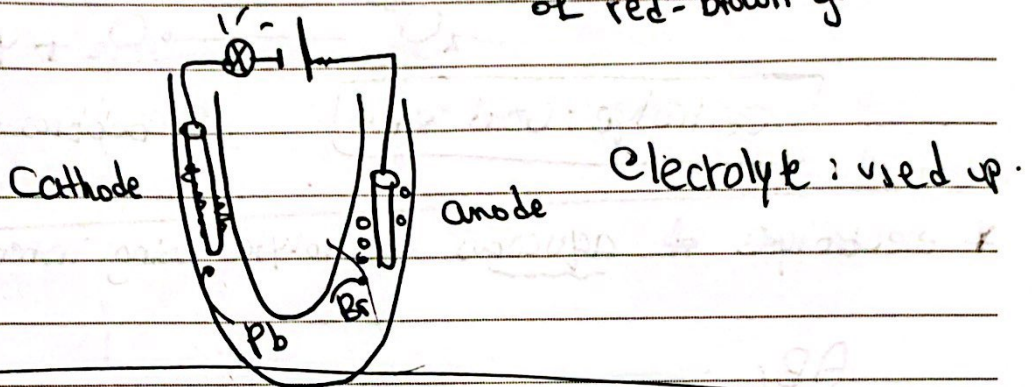 of red-brown g
Cathode
anode
Electrolyte : used up.
Br
Pb